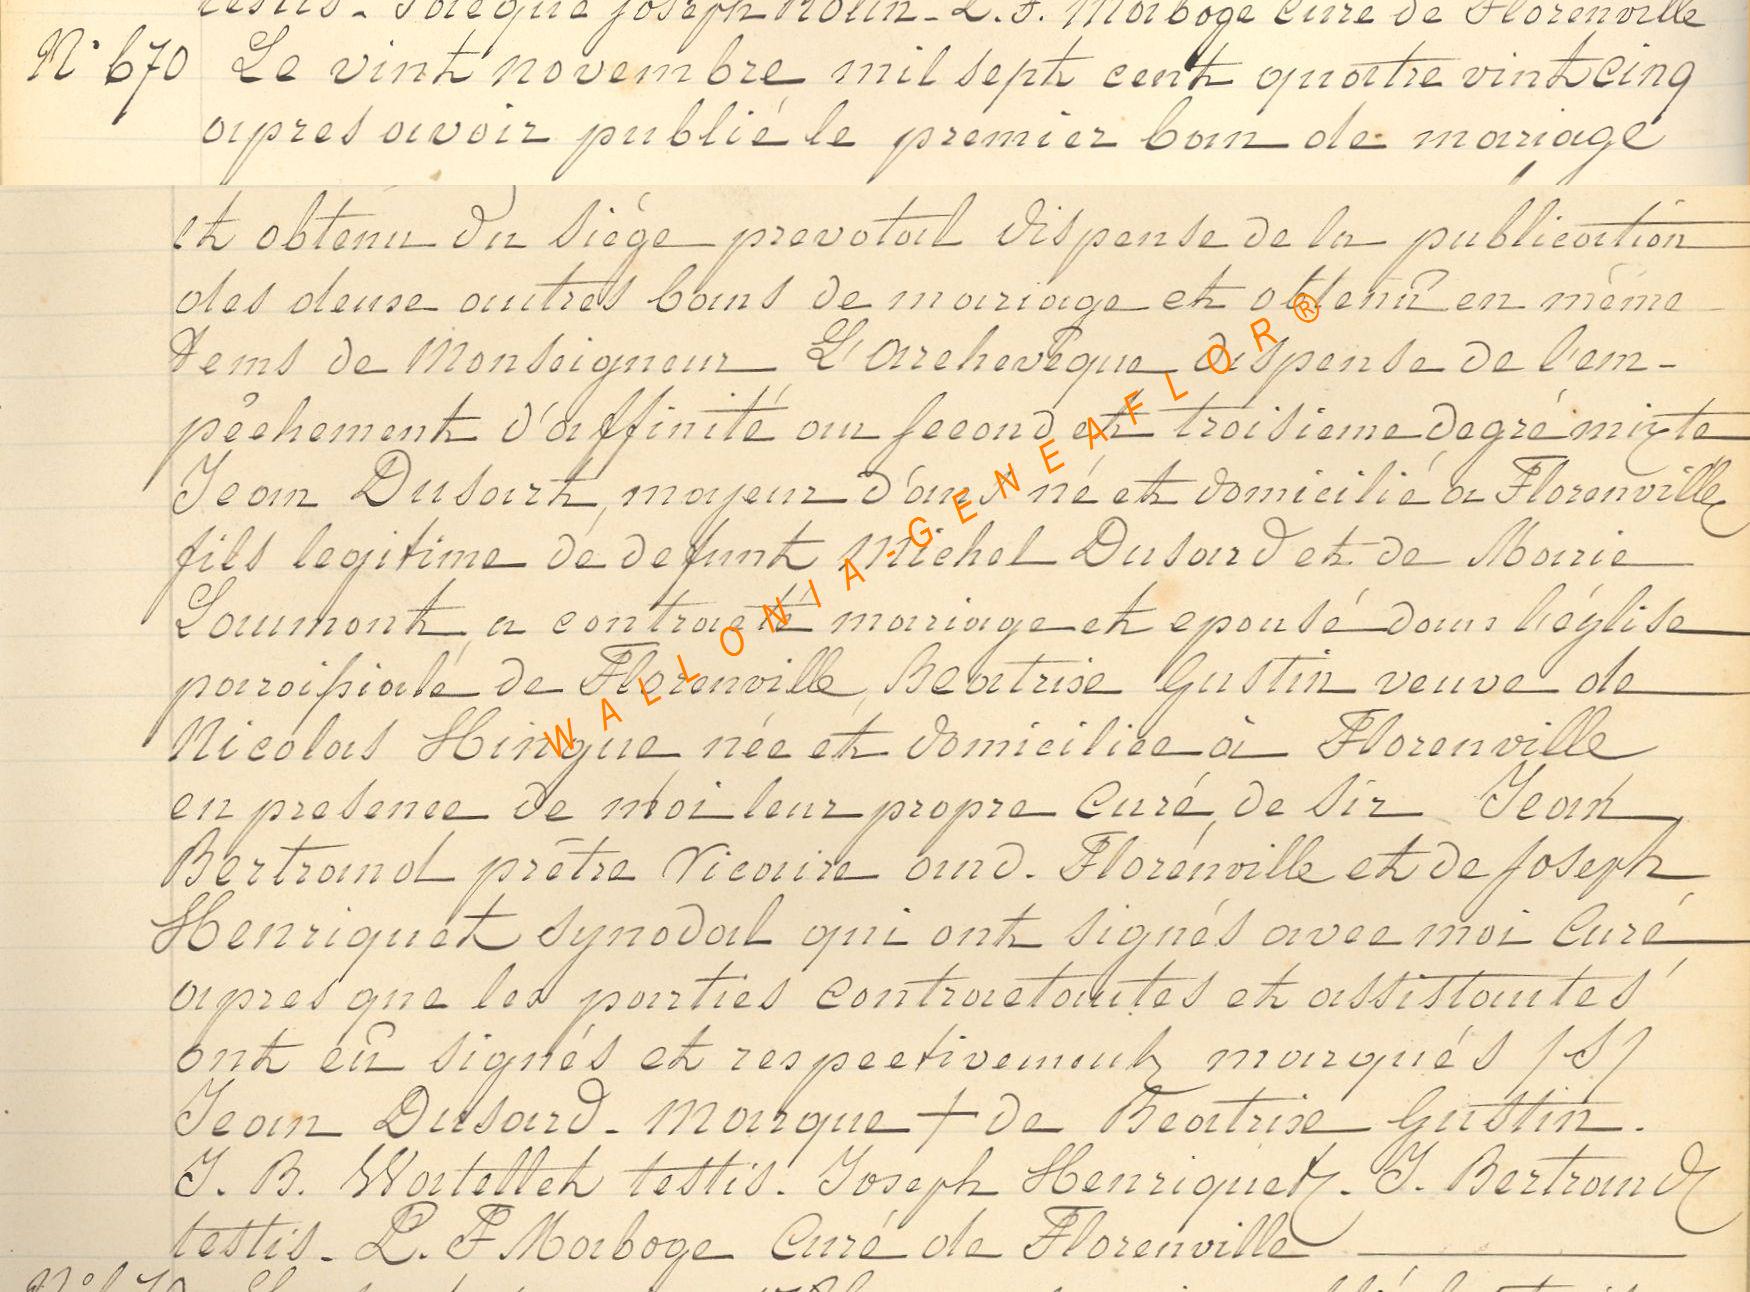 testis - Jacque Joseph Rolin - L. F. Maboge Curé de Florenville
N° 670 Le vint novembre mil sept cent quatre vint cinq
apres avoir publié le premier ban de mariage
et obtenu du siége prevotal dispense de la publication
des deuxe autres bans de mariage et obtenû en même
tems de Monseigneur L'Archevêque dispense de l'em-
pêchement d'affinité au second et troisieme degré mixte
Jean Dusart, mayeur d'ans né et domicilié a Florenville
fils legitime de defunt Michel Dusard et de Marie
Laumont, a contracté mariage et epousé dans l'église
paroissiale de Florenville, Beatrise Gustin veuve de
Nicolas Hingue née et domiciliee à Florenville
en presence de moi leur propre Curé, de sir Jean
Bertrand prêtre Vicaire aud. Florenville et de Joseph
Henriquet synodal qui ont signés avec moi Curé
apres que les parties contractantes et assistantes
ont eû signés et respectivement marqués /S/
Jean Dusard - Marque + de Beatrise Gustin.
J. B. Watellet testis. Joseph Henriquet. J. Bertrand
testis - L. F Maboge Curé de Florenville
WALLONIA-GENEAFLOR®